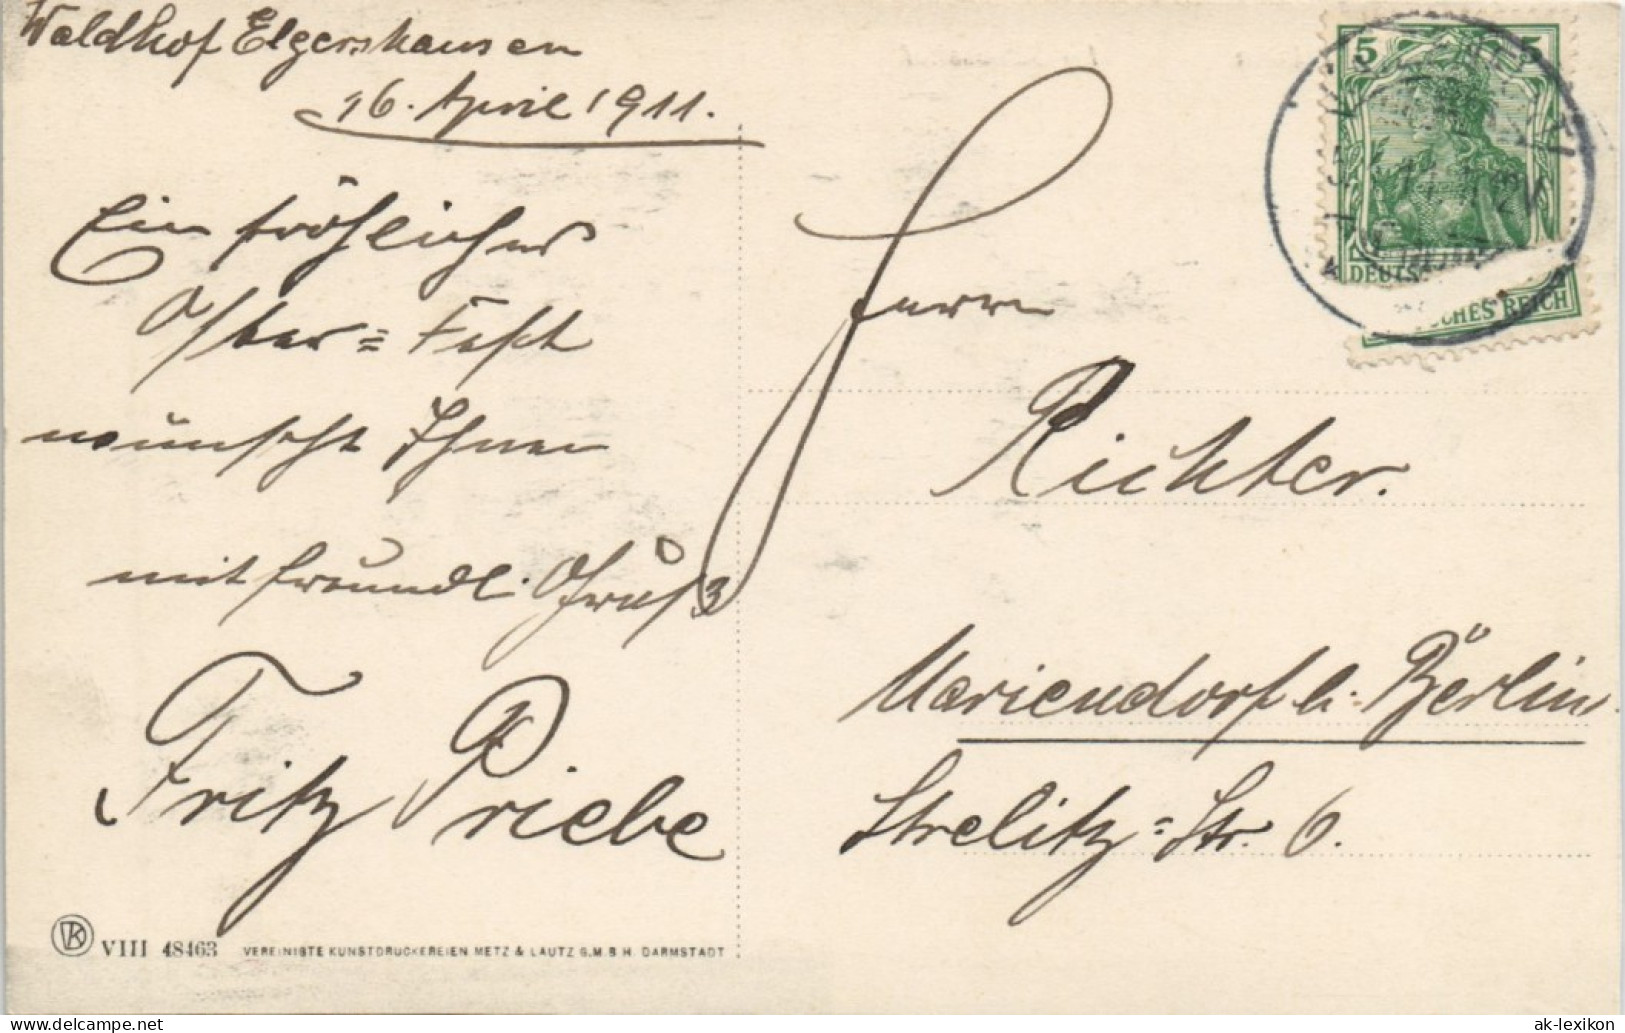 Waldhof Elgershausen
16. April 1911.
Ein fröhliches
Oster = Fest
wünscht Ihnen
mit freundl. Gruß
Fritz Priebe
Herrn
Richter.
Mariendorf b. Berlin
Strelitz = Str. 6.
5 5
DEUTSCHES REICH
VK VIII 48463 VEREINIGTE KUNSTDRUCKEREIEN METZ & LAUTZ G.M.B.H. DARMSTADT
ak-lexikon
www.delcampe.net